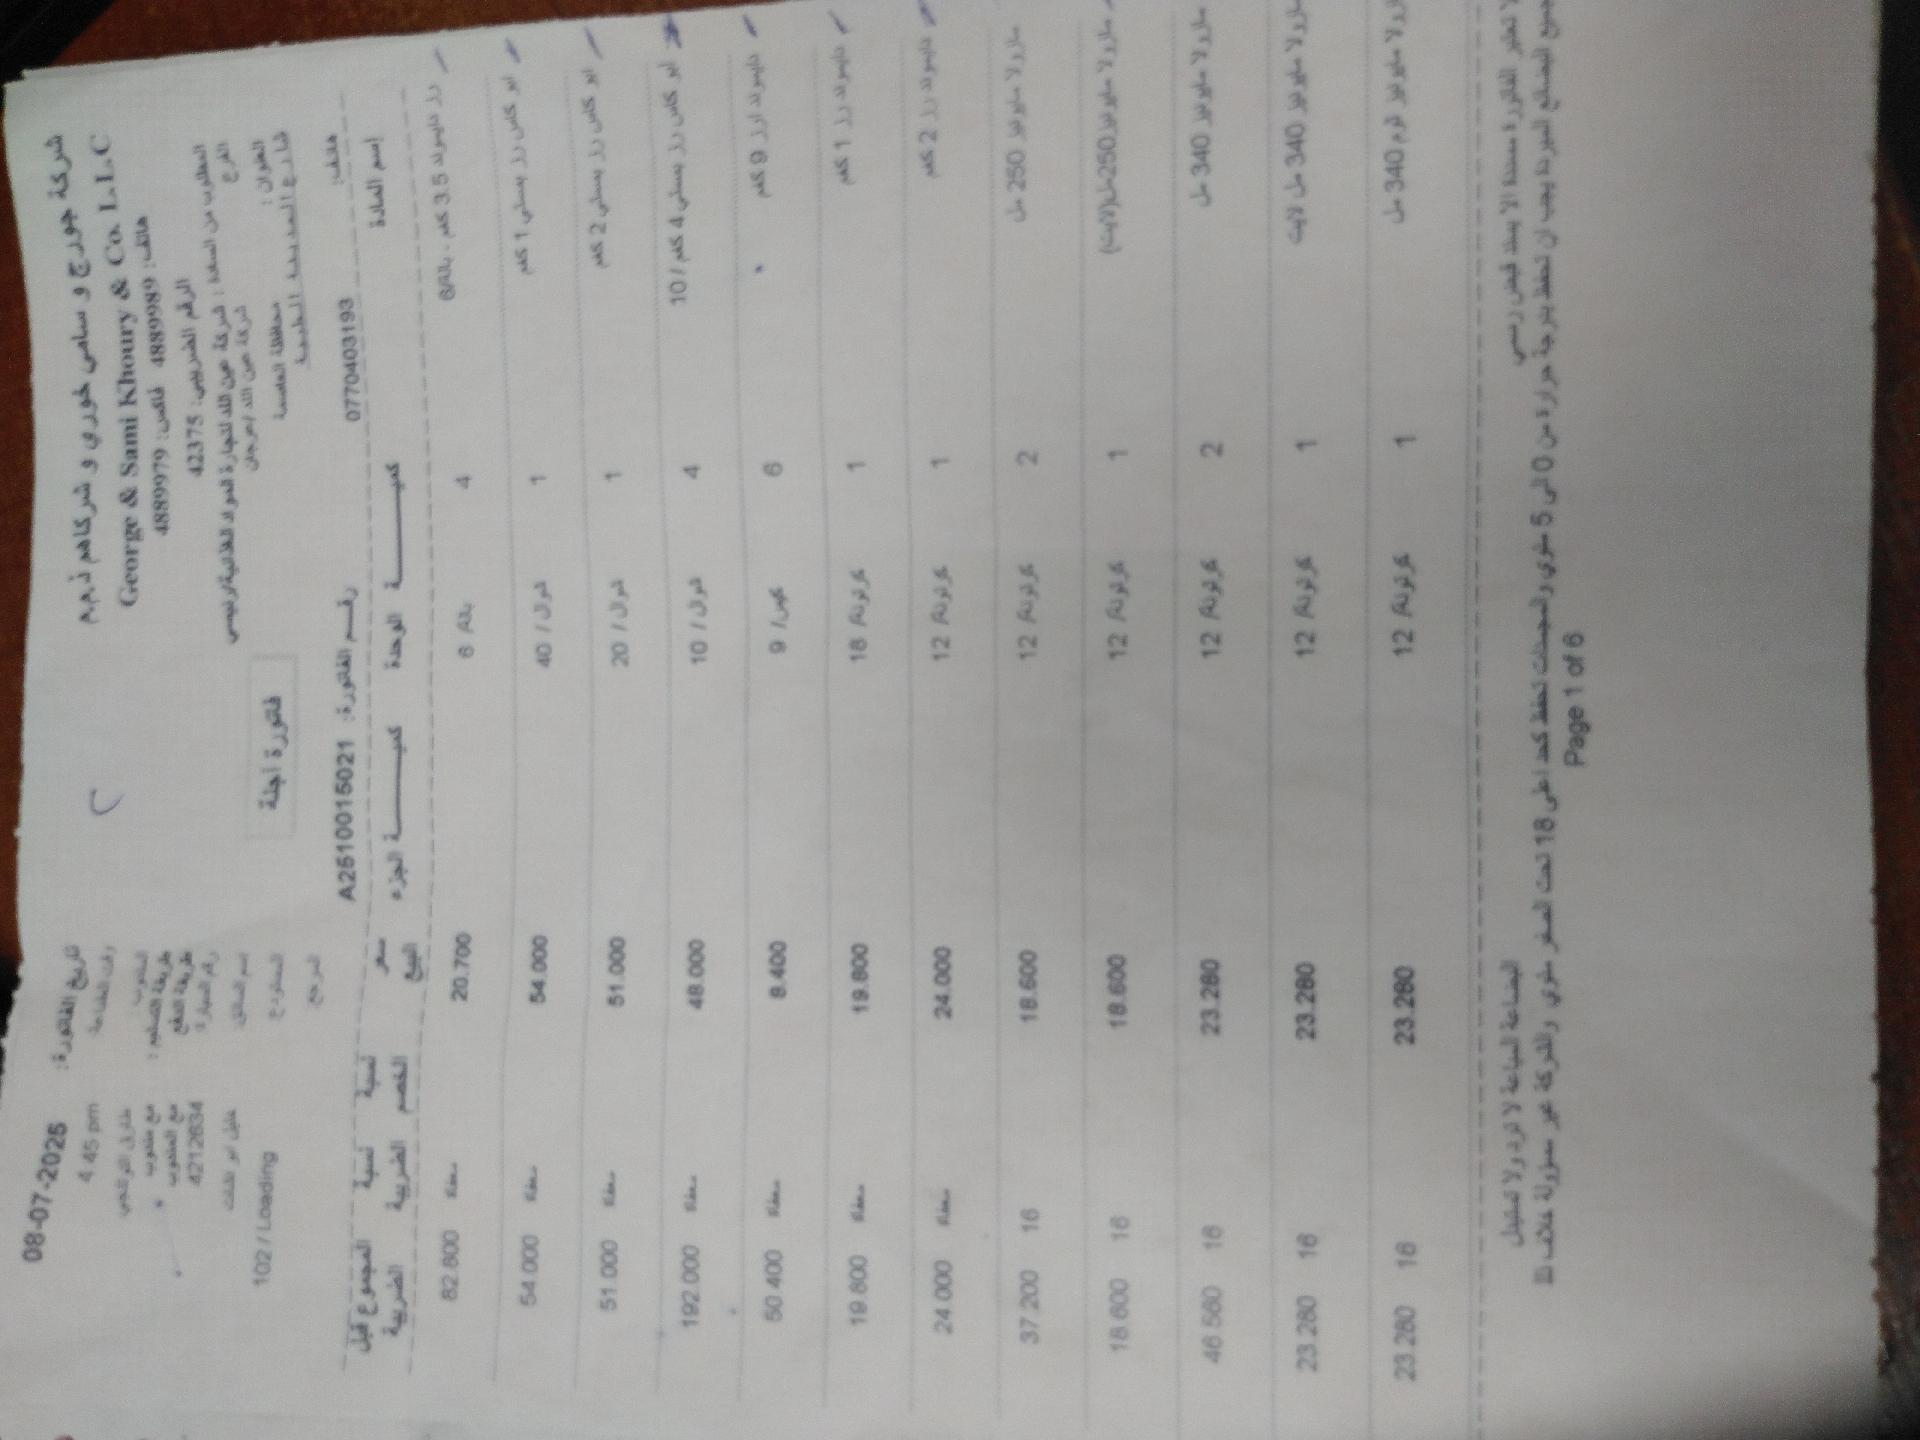 شركة جورج و سامي خوري و شركاهم ذ.م.م
George & Sami Khoury & Co. L.L.C
هاتف: 4889989 فاكس: 4889979
الرقم الضريبي: 42375
08-07-2025 تاريخ الفاتورة:
4:45 pm وقت الطباعة
المطلوب من السادة : شركة عين الله لتجارة المواد الغذائية/رئيسي
الفرع
المندوب
طريقة التسليم : مع مندوب
طريقة الدفع مع المندوب
رقم السيارة 4212634
العنوان : محافظة العاصمة
شارع المدينة الطبية
اسم السائق
المستودع 102 / Loading
المرجع
فاتورة اجلة
هاتف: 0770403193 رقم الفاتورة: A2510015021
إسم المادة كميـــــة الوحدة كميـــــة الجزء سعر البيع نسبة الخصم نسبة الضريبة المجموع قبل الضريبة
رز دايموند 3.5 كغم - بالة/6 4 بالة/ 6 20.700 معفاة 82.800
ابو كاس رز بسمتي 1 كغم 1 شوال / 40 54.000 معفاة 54.000
ابو كاس رز بسمتي 2 كغم 1 شوال / 20 51.000 معفاة 51.000
ابو كاس رز بسمتي 4 كغم / 10 4 شوال / 10 48.000 معفاة 192.000
دايموند ارز 9 كغم 6 كيس/ 9 8.400 معفاة 50.400
دايموند رز 1 كغم 1 كرتونة/ 18 19.800 معفاة 19.800
دايموند رز 2 كغم 1 كرتونة/ 12 24.000 معفاة 24.000
مازولا مايونيز 250 مل 2 كرتونة/ 12 18.600 16 37.200
مازولا مايونيز 250مل(لايت) 1 كرتونة/ 12 18.600 16 18.600
مازولا مايونيز 340 مل 2 كرتونة/ 12 23.280 16 46.560
مازولا مايونيز 340 مل لايت 1 كرتونة/ 12 23.280 16 23.280
مازولا مايونيز ثوم 340 مل 1 كرتونة/ 12 23.280 16 23.280
لا تعتبر الفاتورة مسددة الا بسند قبض رسمي
البضاعة المباعة لا ترد ولا تستبدل
جميع البضائع المبردة يجب ان تحفظ بدرجة حرارة من 0 الى 5 مئوي والمجمدات تحفظ كحد اعلى 18 تحت الصفر مئوي والشركة غير مسؤولة خلاف ذلك
Page 1 of 6